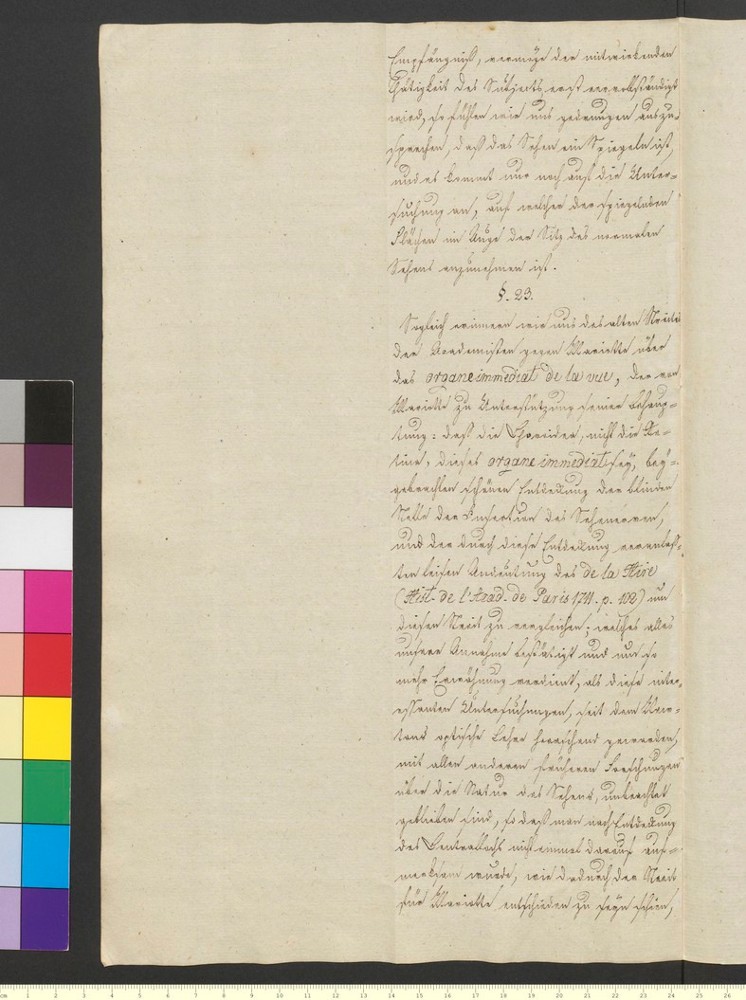 Empfängniß, vermöge der mitwirkenden
Thätigkeit des Subjects erst vervollständigt
wird, so fühlen wir uns gedrungen auszu-
sprechen, daß das Sehen ein Spiegeln ist,
und es kommt nur noch auf die Unter-
suchung an, auf welcher der spiegelnden
Flächen im Auge der Sitz des normalen
Sehens anzunehmen ist.
§. 23.
Sogleich erinnern wir uns des alten Streits
der Academisten gegen Mariotte über
das organe immediat de la vue, der von
Mariotte zu Unterstützung seiner Behaup-
tung: daß die Choroidea, nicht die Re-
tina, dieses organe immediat sey, bey-
gebrachten schönen Entdeckung der blinden
Stelle der Insertion des Sehenerven,
und der durch diese Entdeckung veranlaß-
ten leisen Andeutung des de la Hire
(Hist. de l'Acad. de Paris 1711. p. 102) um
diesen Streit zu vergleichen; welches alles
unsere Annahme bestätigt und um so
mehr Erwähnung verdient, als diese inter-
essanten Untersuchungen, seit dem New-
tons optische Lehre herrschend geworden,
mit allen anderen früheren Forschungen
über die Natur des Sehens, unbeachtet
geblieben sind, so daß man nach Entdeckung
des Centrallochs nicht einmal darauf auf-
merksam wurde, wie dadurch der Streit
für Mariotte entschieden zu seyn schien,